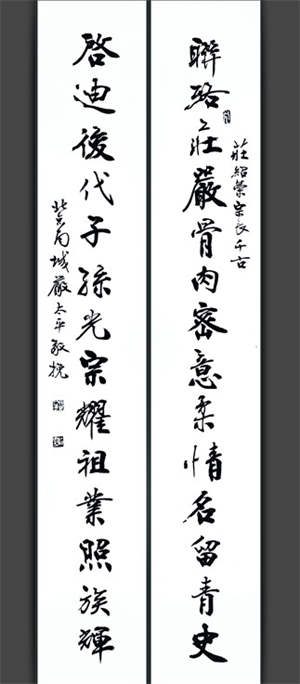 莊紹榮宗長千古
聯絡莊嚴骨肉密意柔情名留青史
啓迪後代子孫光宗耀祖業照族輝
北京南城嚴太平敬挽